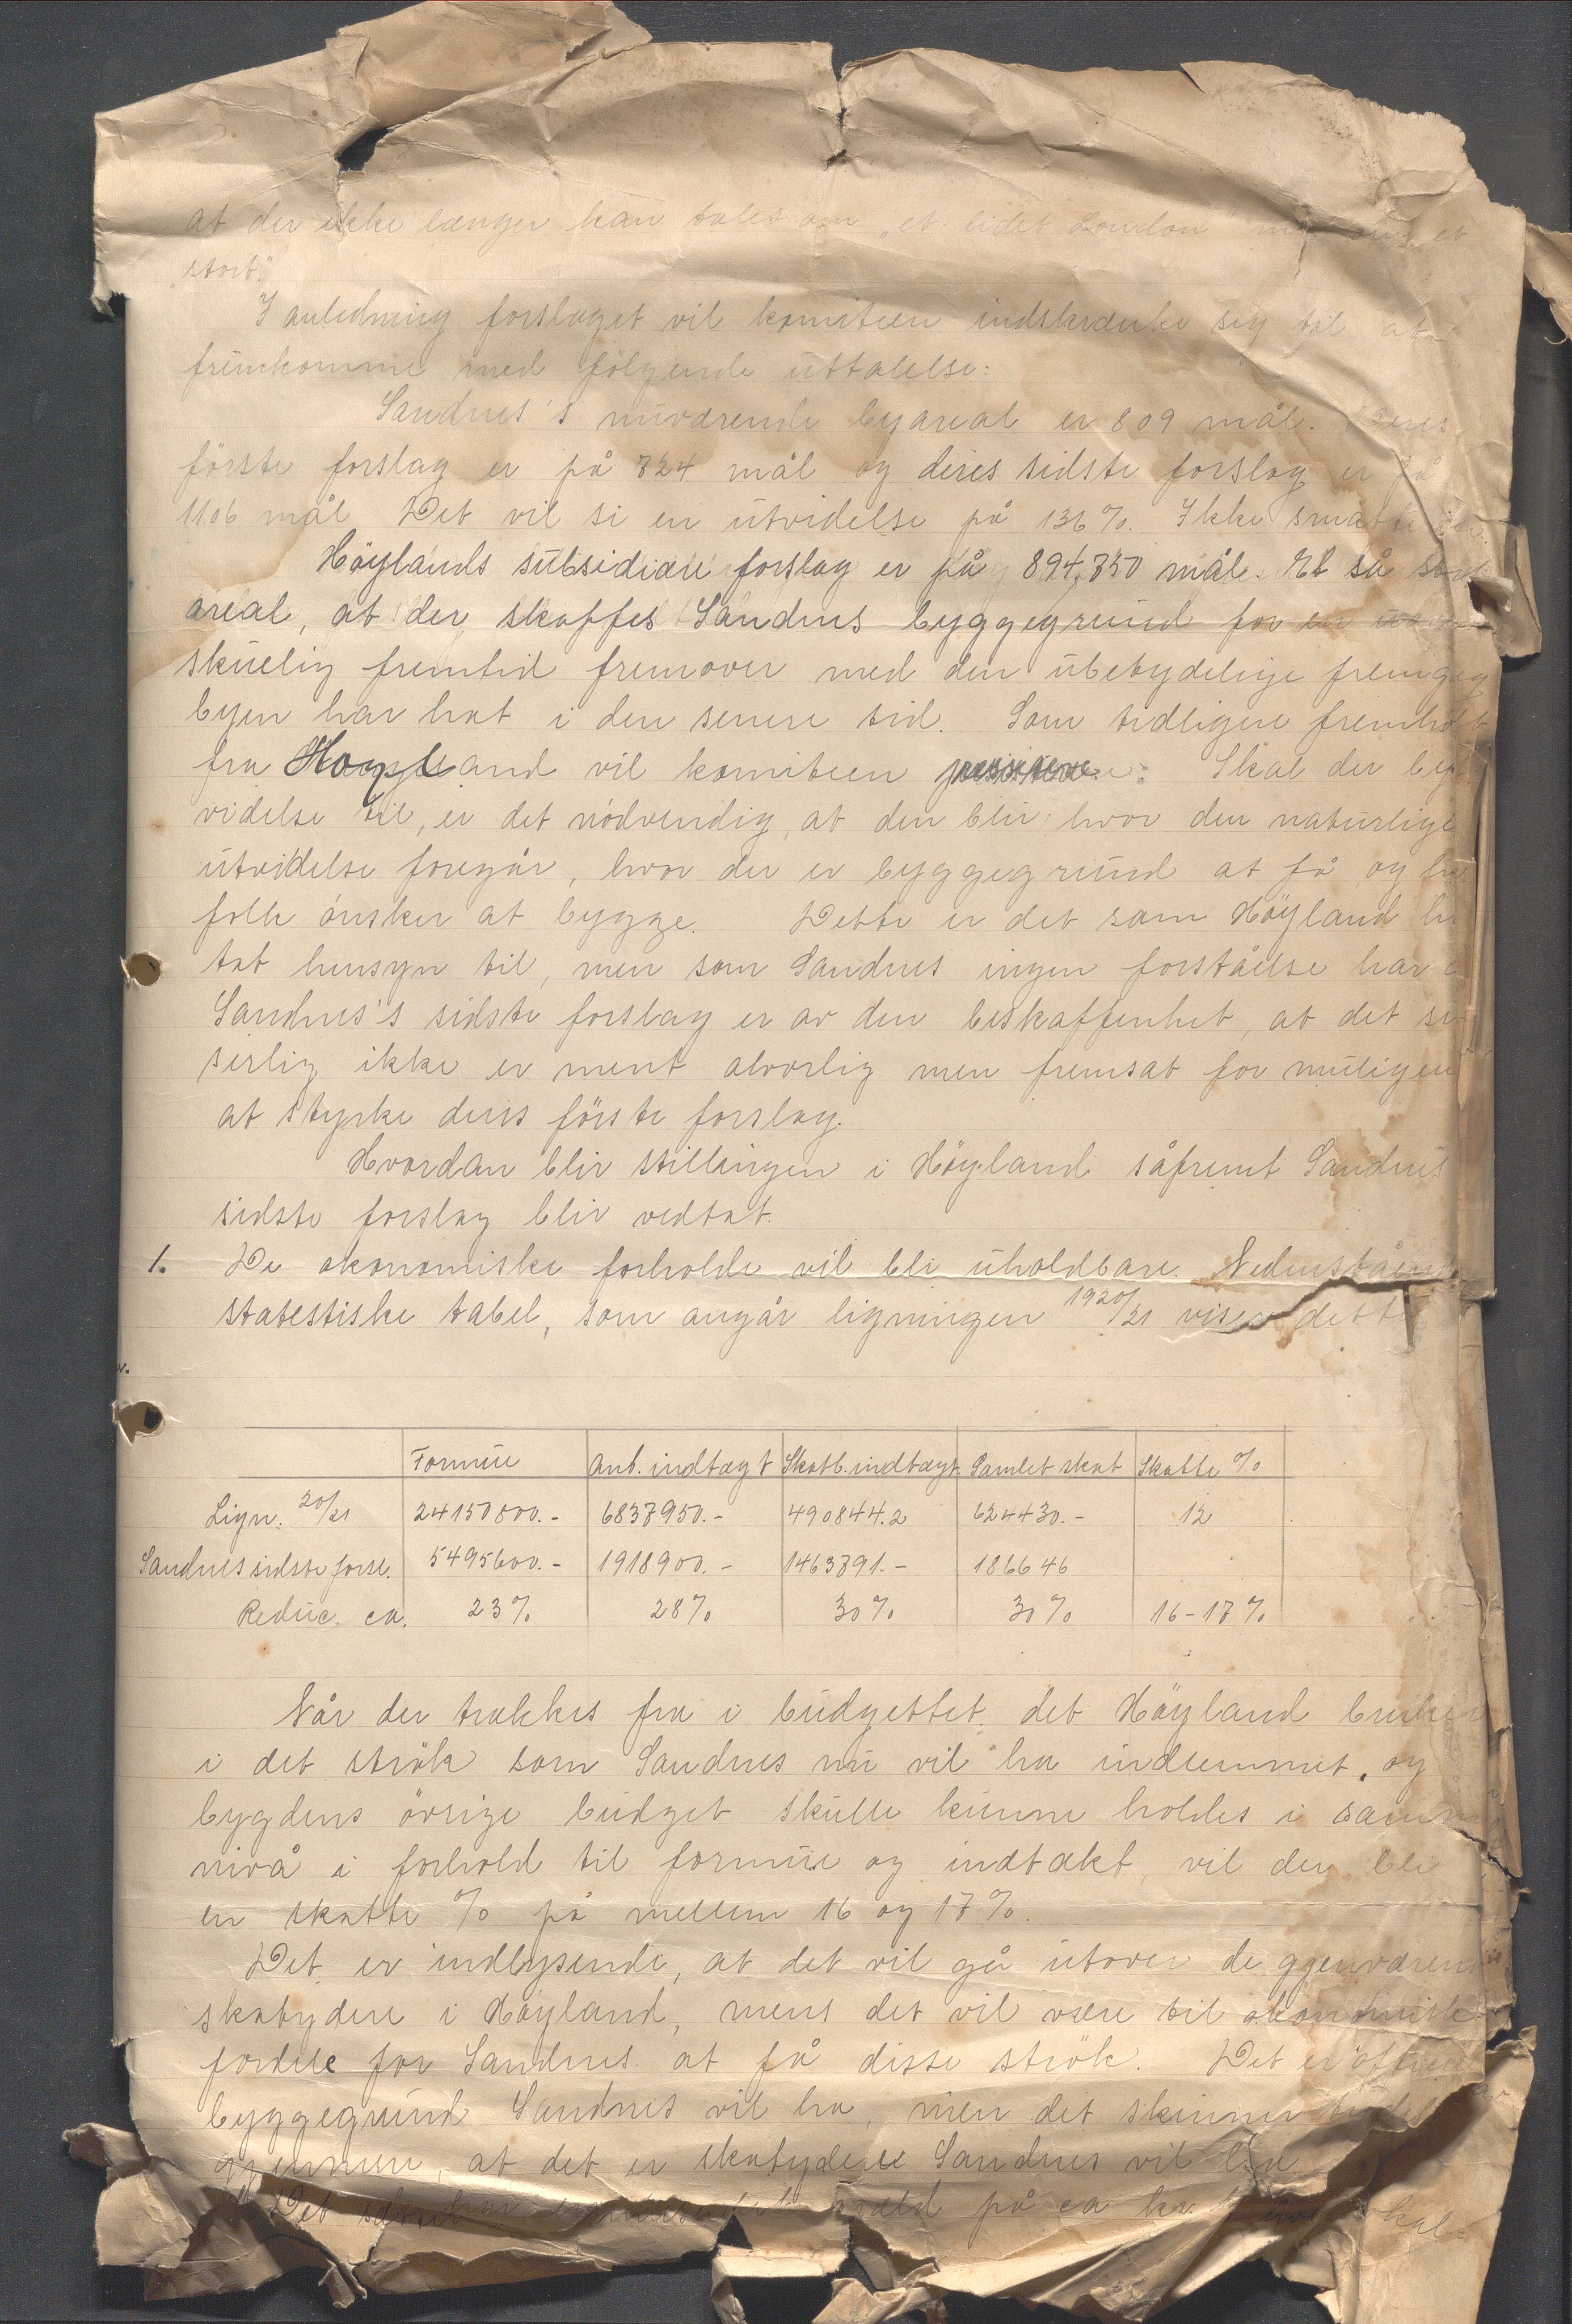 at der ikke længer kan tales om „et lidet London" men om et
„stort".
I anledning forslaget vil komiteen indskrænke sig til at
fremkomme med følgende uttalelse:
Sandnes's nuværende byareal er 809 mål. Deres
förste forslag er på 724 mål og deres sidste forslag er på
1106 mål. Det vil si en utvidelse på 136%. Ikke småtterier.
Höylands subsidiære forslag er på 894,750 mål. Et så stort
areal, at der skaffes Sandnes byggegrund for en uover
skuelig fremtid fremover med den ubetydelige fremgang
byen har hat i den senere tid. Som tidligere fremholdt
fra Høyland vil komiteen Skal der byut
videlse til, er det nödvendig, at den blir hvor den naturlige
utvidelse foregår, hvor der er byggegrund at få og hvor
folk önsker at bygge. Dette er det som Höyland har
tat hensyn til, men som Sandnes ingen forståelse har av
Sandnes's sidste forslag er av den beskaffenhet, at det si
serlig ikke er ment alvorlig men fremsat for muligens
at styrke deres förste forslag.
Hvordan blir stillingen i Höyland såfremt Sandnes
sidste forslag blir vedtat.
1. De økonomiske forholde vil bli uholdbare. Nedenstående
statestiske tabel, som angår ligningen 1920/21 viser dette
Formue Ant. indtægt Skatb. indtægt. Samlet skat Skatte %
Lign. 20/21 24150800.- 6837950.- 490844.2 624430.- 12
Sandnes sidste forsl. 5495600.- 1918900.- 1463791.- 186646
Reduc. ca. 23% 28% 30% 30% 16-17%
Når der trækkes fra i budgettet det Höyland bruker
i det strök som Sandnes nu vil ha indlemmet, og
bygdens övrige budget skulle kunne holdes i samme
nivå i forhold til formue og indtækt, vil der bli
en skatte % på mellem 16 og 17%.
Det er indlysende, at det vil gå utover de gjenværende
skatydere i Höyland, mens det vil være til økonomisk
fordele for Sandnes at få disse strök. Det er
byggegrund Sandnes vil ha, men det skinner
gjennem, at det er skatydere Sandnes vil ha
Det på ca kr.